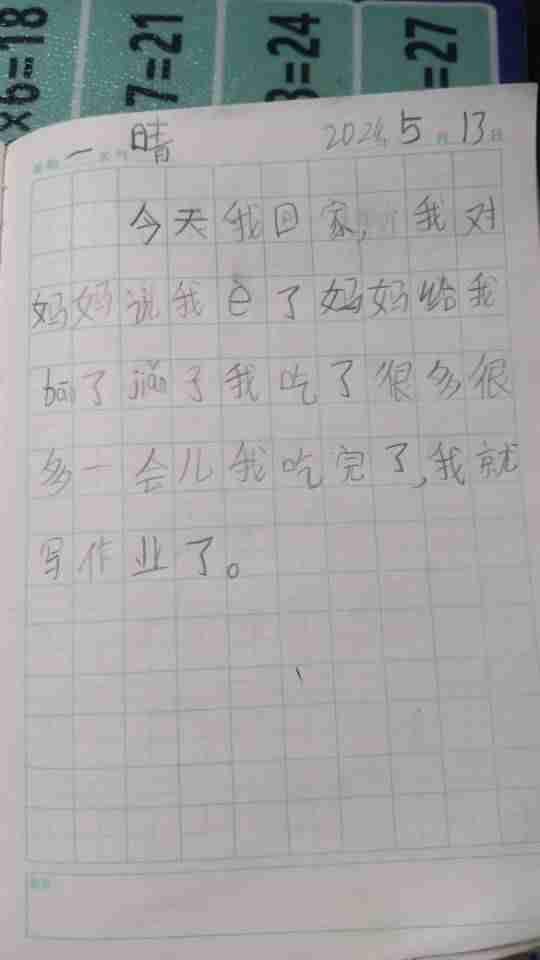 ×6=18
7=21
3=24
=27
星期一 天气晴 2024年5月13日
今天我回家,我对
妈妈说我è了妈妈给我
bāo了jiǎo子我吃了很多很
多一会儿我吃完了,我就
写作业了。